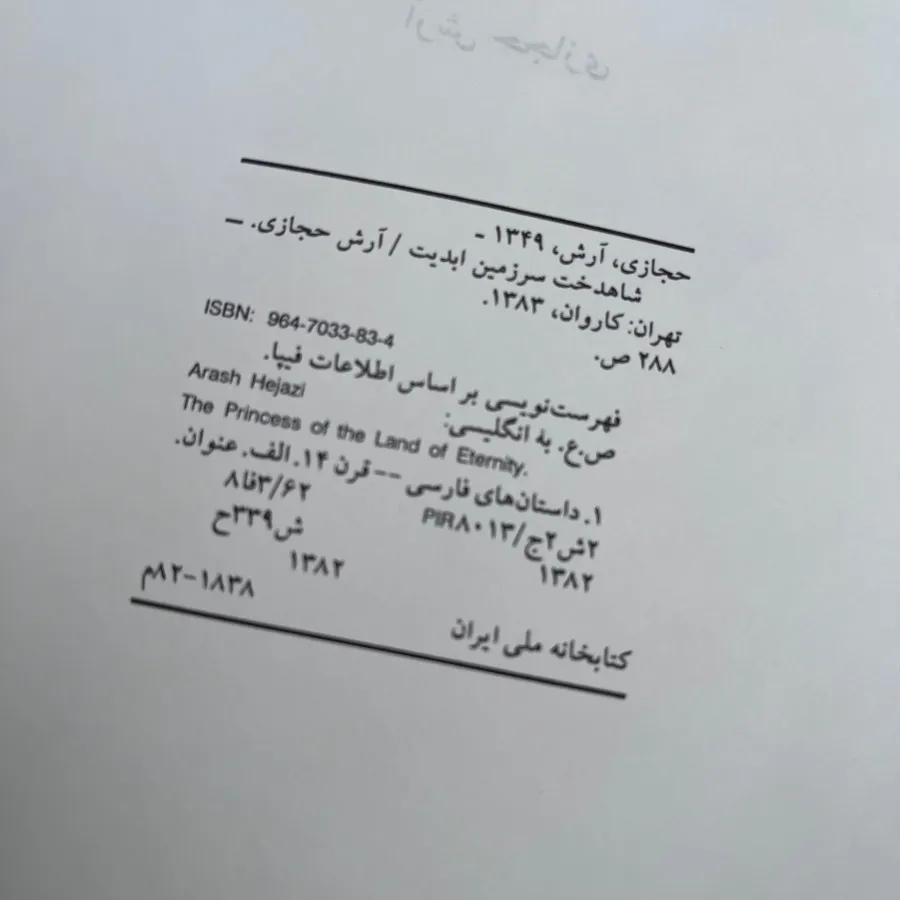 آرش حجازی
حجازی، آرش، ۱۳۴۹ -
شاهدخت سرزمین ابدیت / آرش حجازی. ـ
تهران: کاروان، ۱۳۸۳.
۲۸۸ ص.
ISBN: 964-7033-83-4
فهرست‌نویسی بر اساس اطلاعات فیپا.
ص.ع. به انگلیسی:
Arash Hejazi
The Princess of the Land of Eternity.
۱. داستان‌های فارسی -- قرن ۱۴. الف. عنوان.
۲ش۲ج/PIR۸۰۱۳ ۸فا۳/۶۲
۱۳۸۲ ش۳۳۹ح
۱۳۸۲
کتابخانه ملی ایران ۸۲-۱۸۳۸م